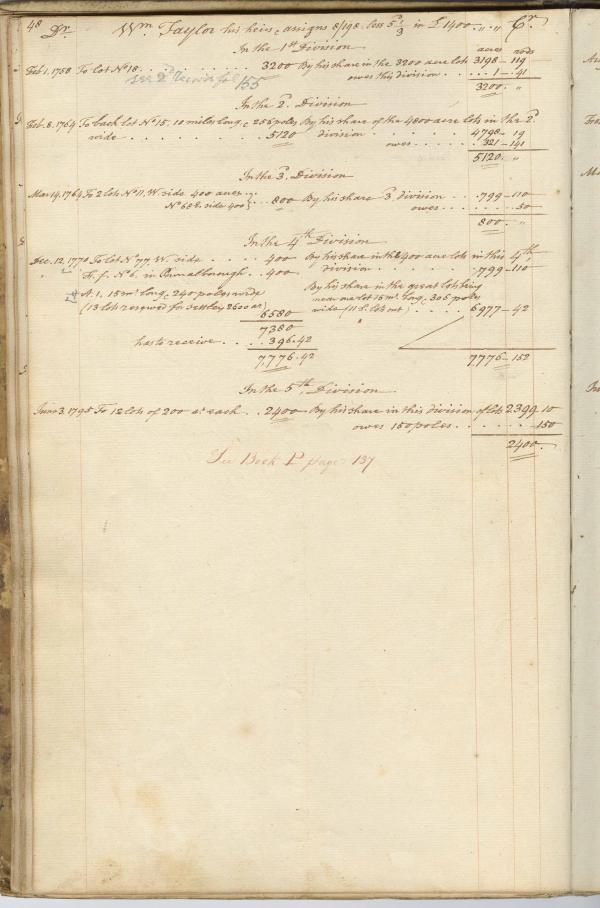 48 Dr. Wm. Taylor his heirs & assigns 8/198 less 5s/3 in £1400 „ „ Cr.
In the 1st Division acres rods
Feb. 1, 1758 To lot No 18 . . . . . . . . 3200 By his share in the 3200 acre lots 3198 — 119
155 owes this division . . . . . 1 — 41
3200 . „
In the 2d. Division
Feb. 8. 1764 To back lot No 15, 10 miles long, & 256 poles By his share of the 4800 acre lots in the 2d.
wide . . . . . . . . 5120 division . . . . . . 4798 — 19
owes . . . . . 321 — 141
5120 . „
In the 3d. Division
Mar. 14, 1764 To 2 lots No 11, W. side 400 acres
No 68 E. side 400 . . 800 By his share 3d. division . . . 799 — 110
owes . . . 50
800 . „
In the 4th Division
Dec. 12, 1770 To lot No 77, W. side . . . . 400 By his share in the 400 acre lots in this 4th,
H. f. No 6. in Pownalborough . . 400 division . . . . . . 799 — 110
A. 1, 15 ms. long, & 240 poles wide By his share in the great lots being
(13 lots reserved for settlers 2600 as.) near one lot 15 ms. long & 306 poles
6580 wide (11 S. lots out) . . . . . 6977 — 42
7380
has to receive . . . . 396 . 42
7,776 . 42 7,776 — 152
In the 5th. Division
June 3. 1795 To 12 lots of 200 as. each . . 2400 By his share in this division of lots 2399 . 10
owes 150 poles . . . . . . — 150
2400 .
See Book P page 137